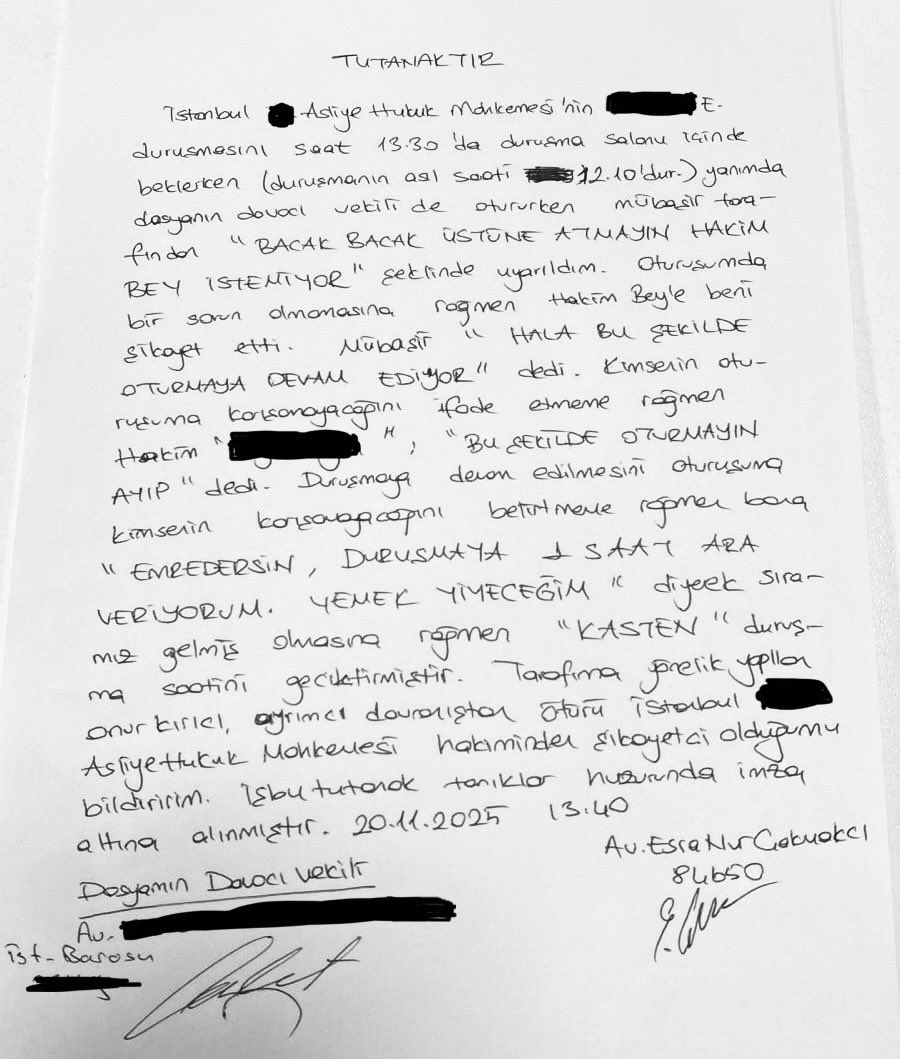 TUTANAKTIR
İstanbul Asliye Hukuk Mahkemesi'nin E-
duruşmasını saat 13.30'da duruşma salonu içinde
beklerken (duruşmanın asıl saati 12.10'dur.) yanımda
dosyanın davacı vekili de otururken mübaşir tara-
fından "BACAK BACAK ÜSTÜNE ATMAYIN HAKİM
BEY İSTEMİYOR" şeklinde uyarıldım. Oturuşumda
bir sorun olmamasına rağmen Hakim Bey'e beni
şikayet etti. Mübaşir "HALA BU ŞEKİLDE
OTURMAYA DEVAM EDİYOR" dedi. Kimsenin otu-
ruşuma karışamayacağını ifade etmeme rağmen
Hakim " ", "BU ŞEKİLDE OTURMAYIN
AYIP" dedi. Duruşmaya devam edilmesini oturuşuma
kimsenin karışamayacağını belirtmeme rağmen bana
"EMREDERSİN, DURUŞMAYA 1 SAAT ARA
VERİYORUM. YEMEK YİYECEĞİM" diyerek sıra-
mız gelmiş olmasına rağmen "KASTEN" duruş-
ma saatini geciktirmiştir. Tarafıma yönelik yapılan
onur kırıcı, ayrımcı davranıştan ötürü İstanbul
Asliye Hukuk Mahkemesi hakiminden şikayetçi olduğumu
bildiririm. İşbu tutanak tanıklar huzurunda imza
altına alınmıştır. 20.11.2025 13:40
Av. Esra Nur
84650
Dosyamın Davacı Vekili
Av.
İst. Barosu